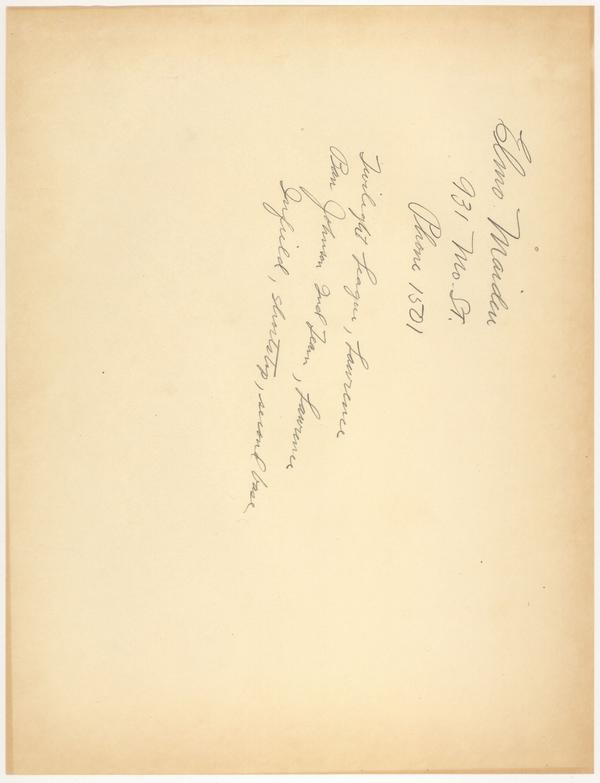 Elmo Maiden
931 Mo. St.
Phone 1501
Twilight League, Lawrence
Ban Johnson 2nd Team, Lawrence
Infield, shortstop, second base